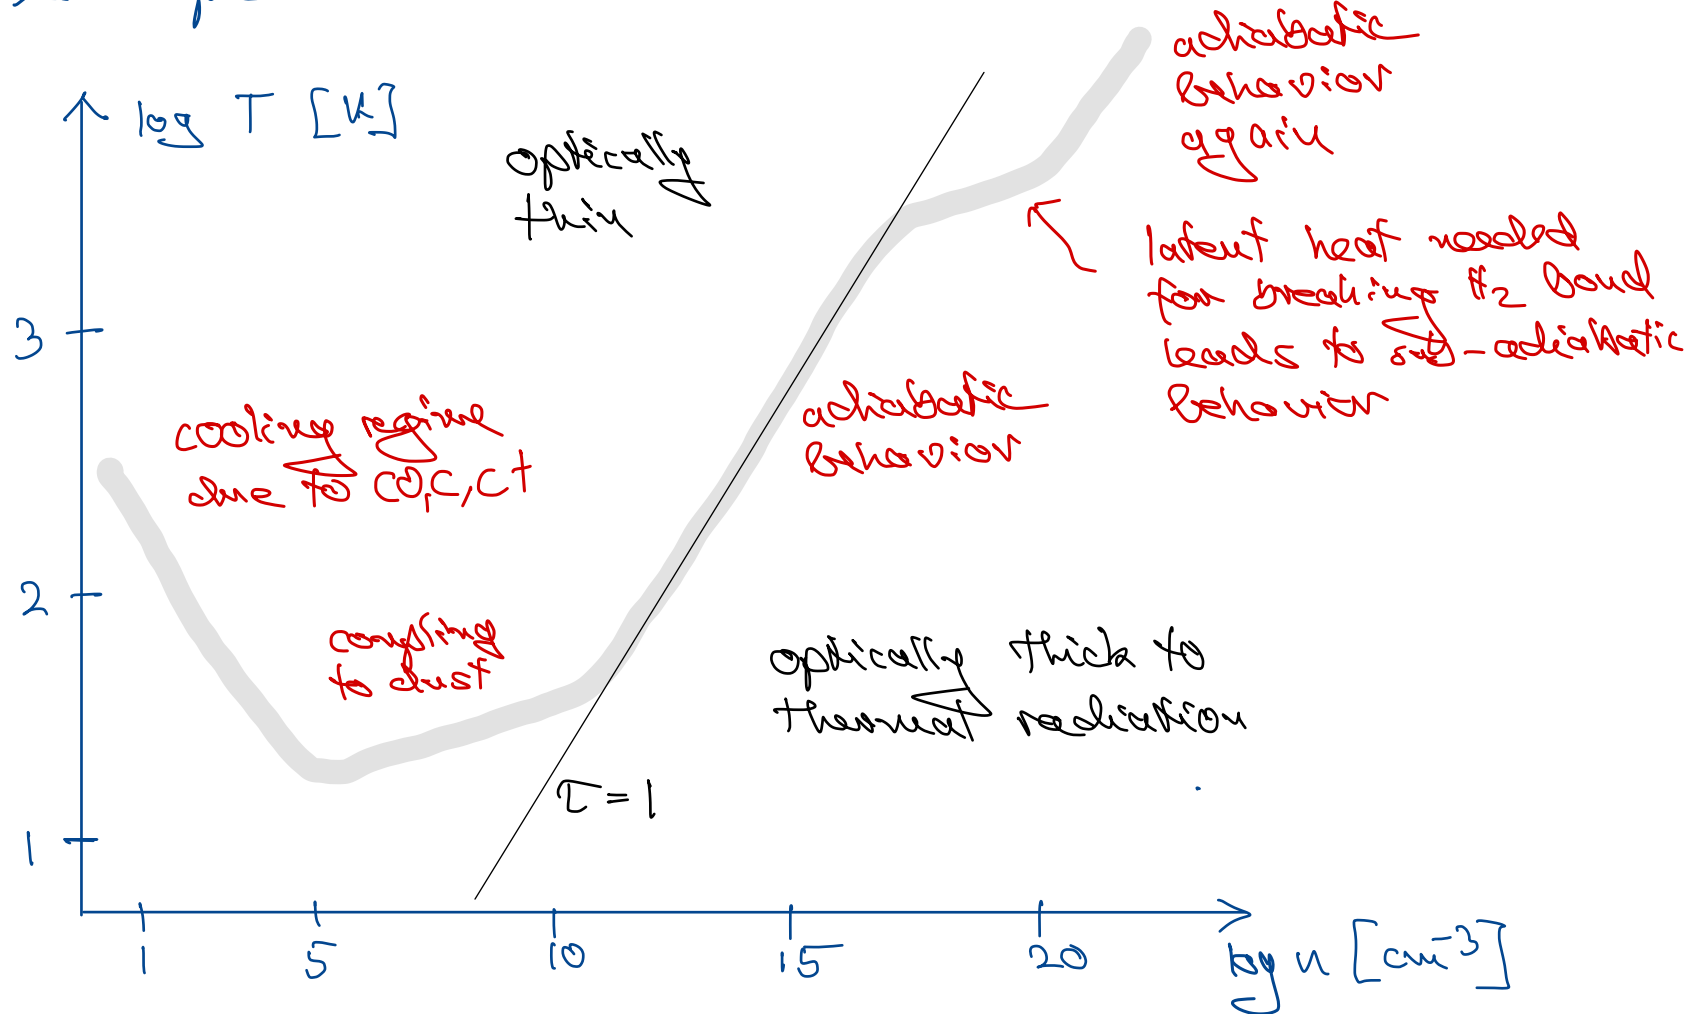 log T [K]
optically
thin
adiabatic
behavior
again
latent heat needed
for breaking H2 bond
leads to sub-adiabatic
behavior
3
cooling regime
due to CO, C, C+
adiabatic
behavior
2
coupling
to dust
optically thick to
thermal radiation
τ = 1
1
1 5 10 15 20
log n [cm⁻³]